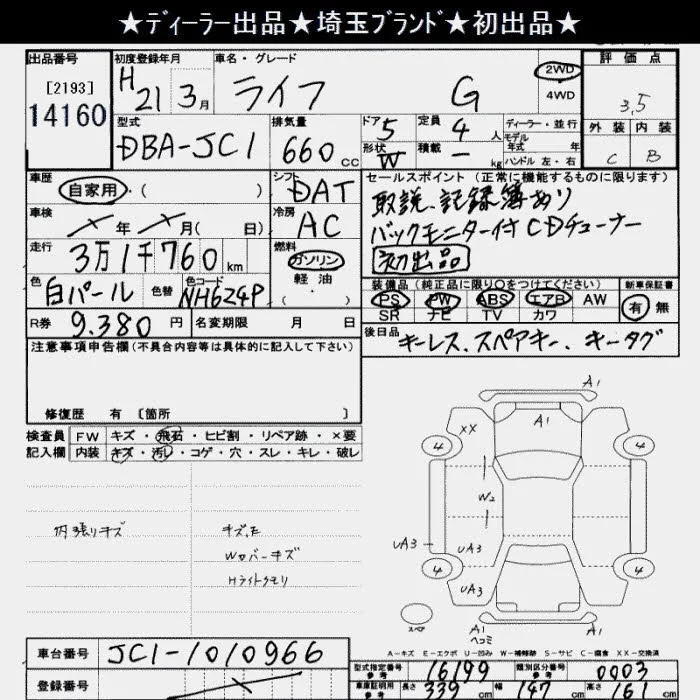 ★ディーラー出品★埼玉ブランド★初出品★
出品番号 初度登録年月 車名・グレード 評価点
[2193] H21年3月 ライフ G 2WD 4WD 3.5
14160
型式 排気量 ドア 定員 ディーラー・並行 外装 内装
DBA-JC1 660cc 5 4人 モデル年式 年 C B
形状 W 積載 - kg ハンドル 左・右
車歴 自家用・( ) シフト DAT セールスポイント(正常に機能するものに限ります)
車検 ×年×月( 日) 冷房 AC 取説、記録簿あり
バックモニター付CDチューナー
走行 3万1千760km 燃料 ガソリン 軽油 ( ) 初出品
色 白パール 色替 色コード NH624P 装備品(純正品に限り○をつけてください) 新車保証書
PS PW ABS エアB AW 有 無
SR ナビ TV カワ
R券 9.380円 名変期限 月 日 後日品 キーレス、スペアキー、キータグ
注意事項申告欄(不具合内容等は具体的に記入して下さい)
修復歴 有 〔箇所 〕
検査員 FW キズ・飛石・ヒビ割・リペア跡・×要
記入欄 内装 キズ・汚レ・コゲ・穴・スレ・キレ・破レ
A1
A1
XX
4 4
W2
UA3 UA3
4 4
UA3
スペア
A1
ヘコミ
内張りキズ キズ,E
Wカバーキズ
Hライトクモリ
A-キズ E-エクボ U-凹み W-補修跡 S-サビ C-腐食 XX-交換済
車台番号 JC1-1010966
型式指定番号 参考 16199 類別区分番号 参考 0003
登録番号 ×
車庫証明用 参考 長さ 339cm 幅 147cm 高さ 161cm